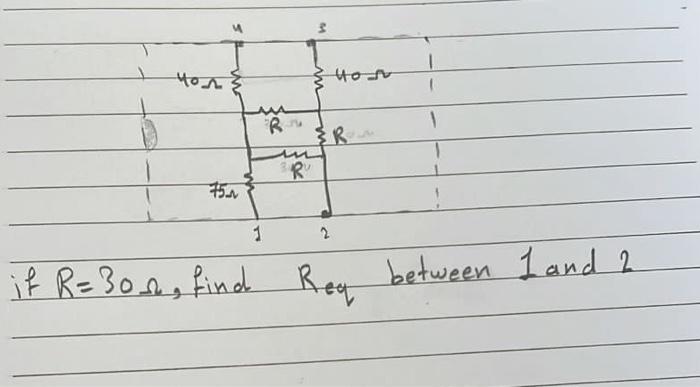 4 3
40Ω 40Ω
R
R
R
75Ω
1 2
if R=30Ω, find Req between 1 and 2